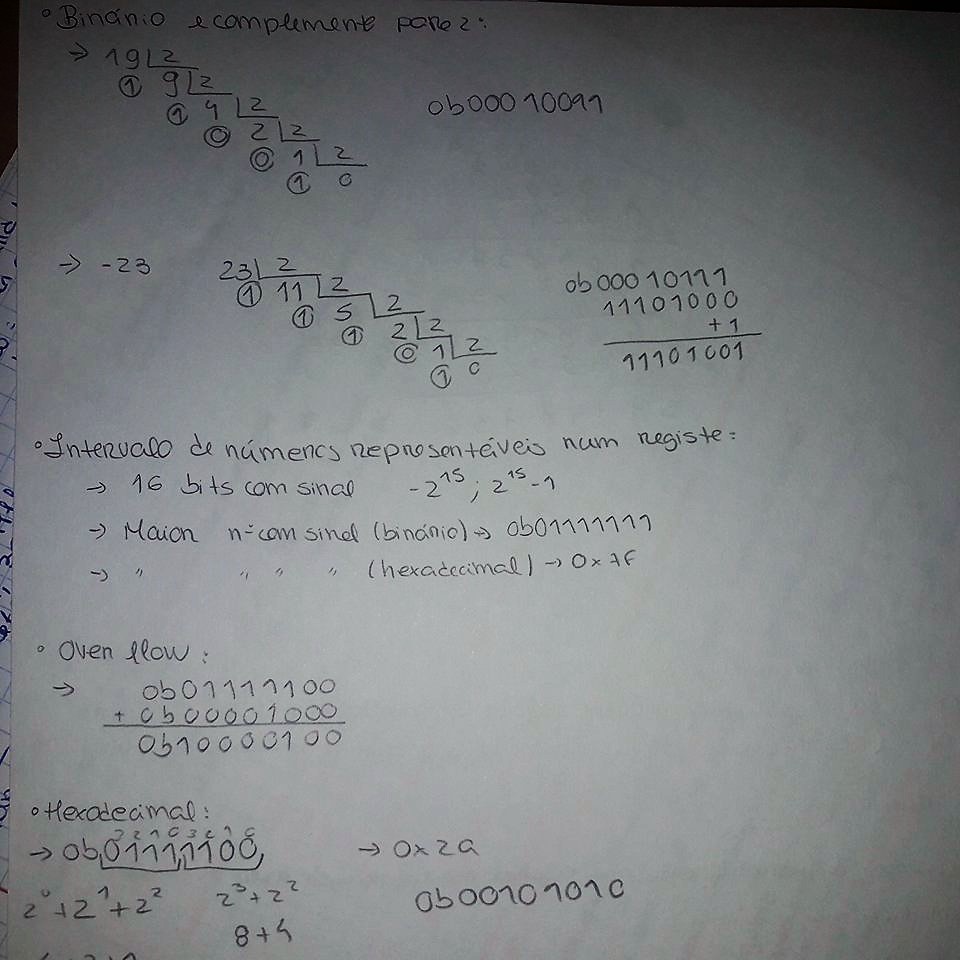 ° Binário e complemente para 2:
→ 19 2
1 9 2
1 4 2
0 2 2
0 1 2
1 0
0b00010011
→ -23
23 2
1 11 2
1 5 2
1 2 2
0 1 2
1 0
0b00010111
11101000
+1
11101001
° Intervalo de números representáveis num registe:
→ 16 bits com sinal -2^15 ; 2^15-1
→ Maior nº com sinal (binário) → 0b01111111
→ " " " " (hexadecimal) → 0x7F
° Over flow:
→ 0b01111100
+ 0b00001000
0b10000100
° Hexadecimal:
3 2 1 0 3 2 1 0
→ 0b01111100 → 0x2a
2^0+2^1+2^2 2^3+2^2 0b00101010
8+4